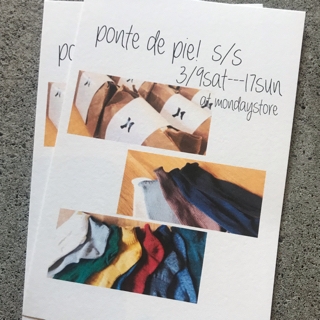 ponte de pie! s/s
3/9sat---17sun
at mondaystore